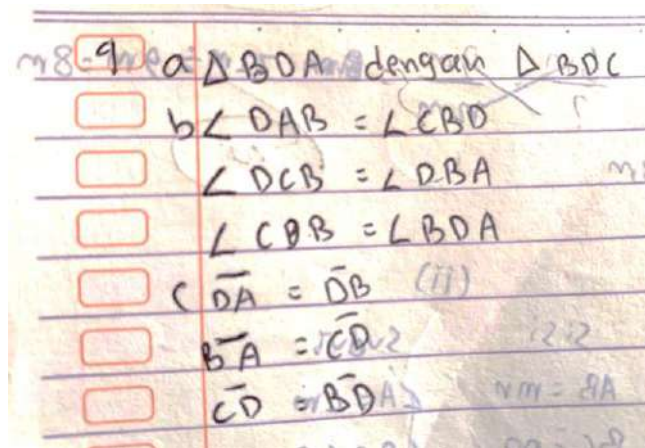 9 a △ BDA dengan △ BDC
b ∠ DAB = ∠ CBD
∠ DCB = ∠ DBA
∠ CDB = ∠ BDA
c D̅A̅ = D̅B̅
B̅A̅ = C̅D̅
C̅D̅ = B̅D̅